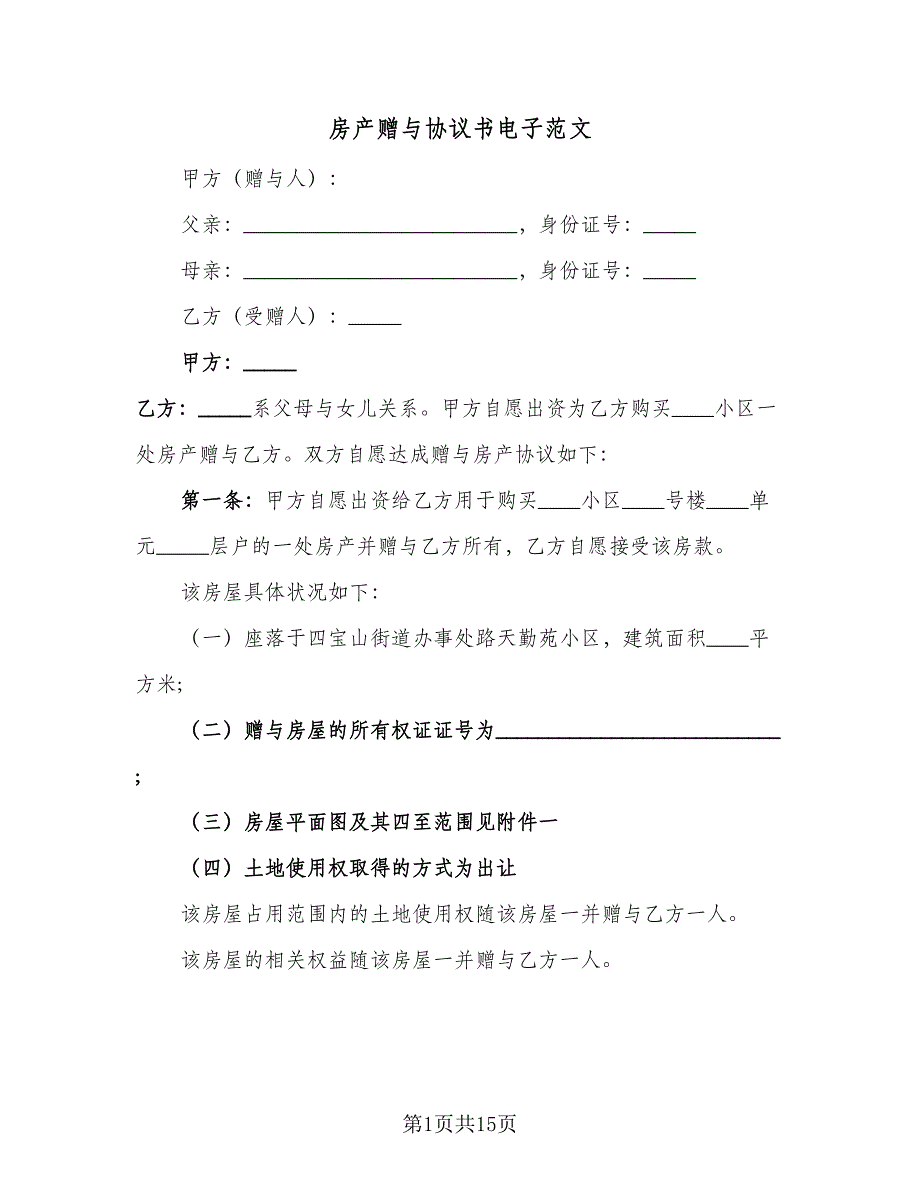 房产赠与协议书电子范文
甲方（赠与人）：
父亲：__________________________，身份证号：_____
母亲：__________________________，身份证号：_____
乙方（受赠人）：_____
甲方：_____
乙方：_____系父母与女儿关系。甲方自愿出资为乙方购买____小区一
处房产赠与乙方。双方自愿达成赠与房产协议如下：
第一条：甲方自愿出资给乙方用于购买____小区____号楼____单
元_____层户的一处房产并赠与乙方所有，乙方自愿接受该房款。
该房屋具体状况如下：
（一）座落于四宝山街道办事处路天勤苑小区，建筑面积____平
方米;
（二）赠与房屋的所有权证证号为___________________________
;
（三）房屋平面图及其四至范围见附件一
（四）土地使用权取得的方式为出让
该房屋占用范围内的土地使用权随该房屋一并赠与乙方一人。
该房屋的相关权益随该房屋一并赠与乙方一人。
第1页共15页